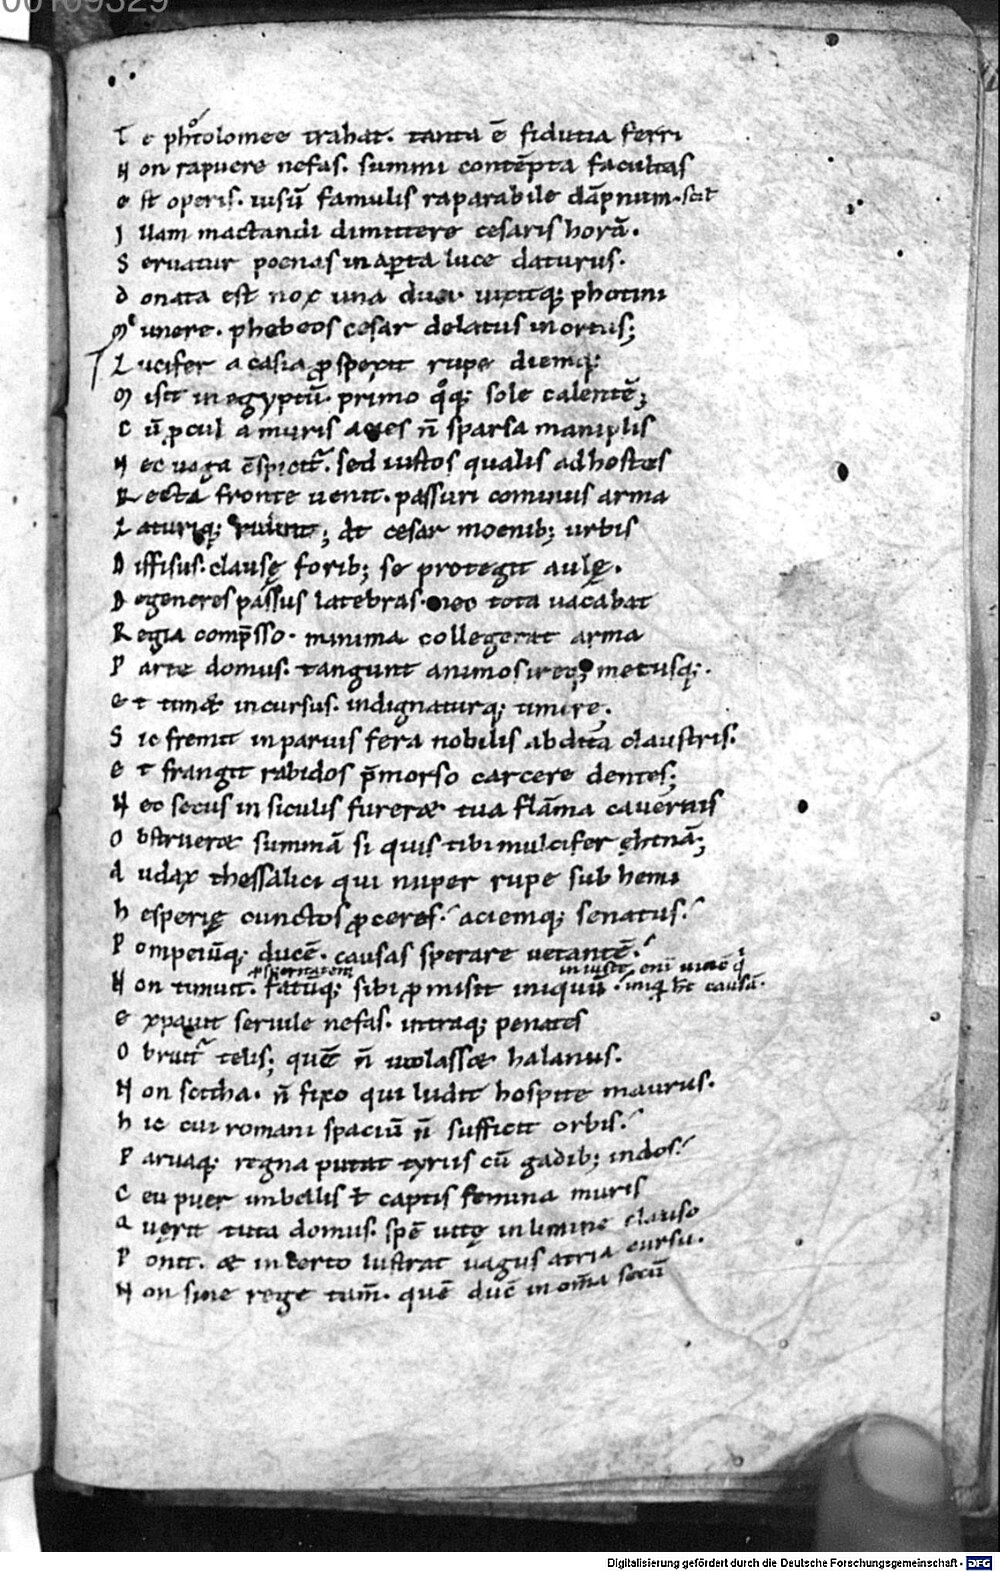 00109329
T e phtolomee trahat. tanta ē fidutia ferri
N on rapuere nefas. summi contēpta facultas
e st operis. uisū famulis raparabile dāpnum. scił
I llam mactandi dimittere cesaris horā.
S eruatur poenas in aperta luce daturus.
D onata est nox una duci. uixitq; photini
M unere. phebeos cesar delatus in ortus;
L ucifer a casia prospexit rupe diemq;
M isit in egyptū. primo qoq; sole calentē;
C ū procul a muris acies n̄ sparsa maniplis
N ec uaga cōspicit̄. sed iustos qualis ad hostes
R ecta fronte uenit. passuri cominus arma
L aturiq; ruunt; at cesar moenib; urbis
D iffisus. clausę forib; se protegit aulę.
D egeneres passus latebras. nec tota uacabat
R egia comp̄sso. minima collegerat arma
P arte domus. tangunt animos ireq; metusq;.
e t timet incursus. indignaturq; timere.
S ic fremit in paruis fera nobilis abdita claustris.
e t frangit rabidos p̄morso carcere dentes;
N ec secus in siculis fureret tua flāma cauernis
O bstrueret summā si quis tibi mulcifer ęhtnā;
A udax thessalici qui nuper rupe sub hemi
h esperię cunctos proceres. aciemq; senatus.
P ompeiūq; ducē. causas sperare uetantē.
N on timuit. fatūq; sibi promisit iniquū.
e xpauit seruile nefas. intraq; penates
O bruit̄ telis; quē n̄ uiolasset halanus.
N on scitha. n̄ fixo qui ludit hospite maurus.
h ic cui romani spaciū n̄ sufficit orbis.
P aruaq; regna putat tyriis cū gadib; indos.
C eu puer imbellis ł captis femina muris
a uęrit tuta domus. spē uitę in limine clauso
P onit. et incerto lustrat uagus atria cursu.
N on sine rege tam̄. quē ducē in om̄a secū
Digitalisierung gefördert durch die Deutsche Forschungsgemeinschaft - DFG